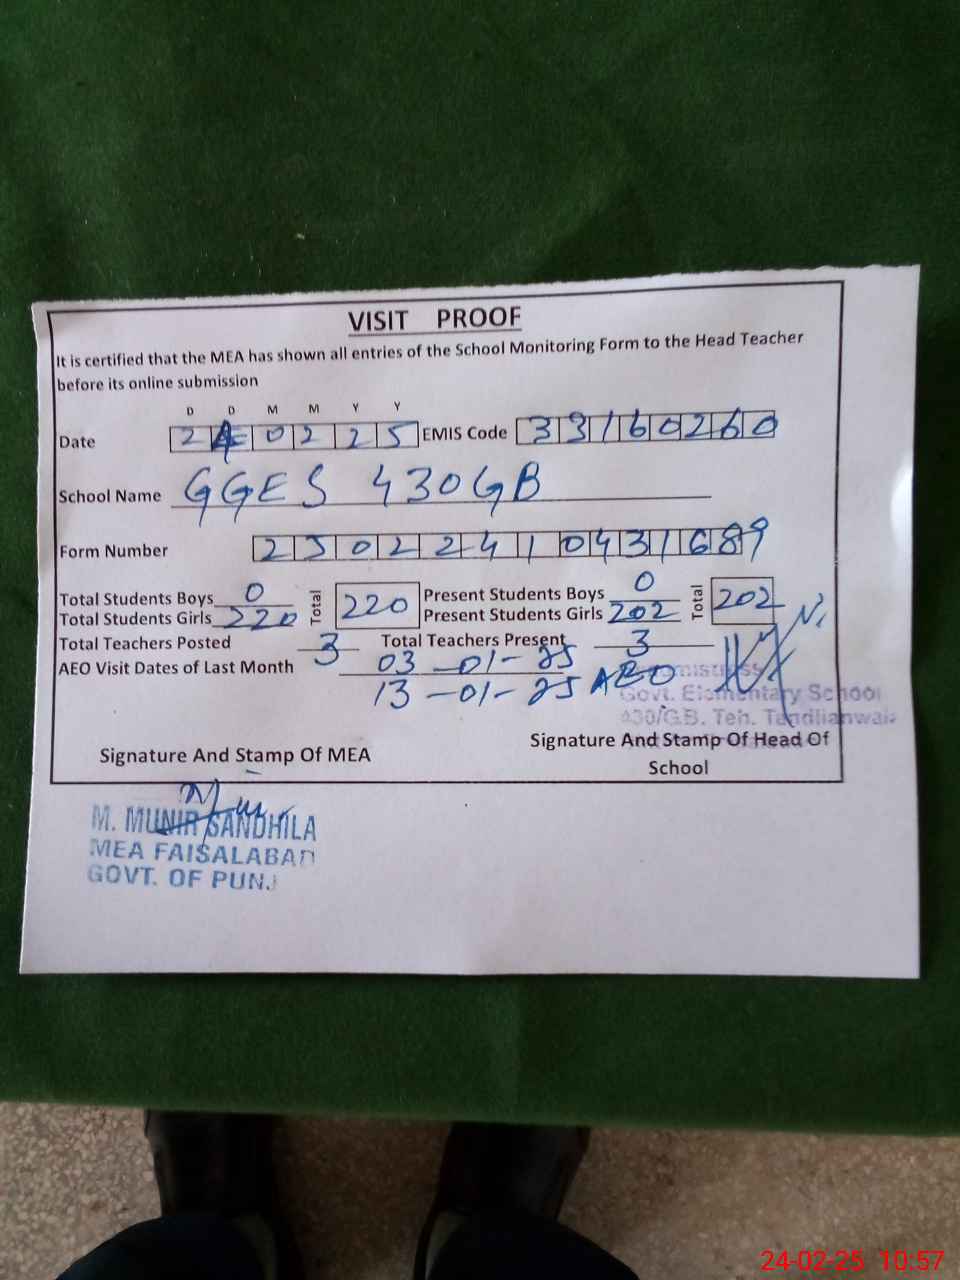 VISIT PROOF
It is certified that the MEA has shown all entries of the School Monitoring Form to the Head Teacher
before its online submission
D D M M Y Y
Date 2 4 0 2 2 5 EMIS Code 3 3 1 6 0 2 6 0
School Name GGES 430GB
Form Number 2 5 0 2 2 4 1 0 4 3 1 6 8 9
Total Students Boys 0 Total 220 Present Students Boys 0 Total 202
Total Students Girls 220 Present Students Girls 202
Total Teachers Posted 3 Total Teachers Present 3
AEO Visit Dates of Last Month 03-01-25
13-01-25 AEO
Govt. Elementary School
430/G.B. Teh. Tandlianwala
Signature And Stamp Of MEA Signature And Stamp Of Head Of
School
M. MUNIR SANDHILA
MEA FAISALABAD
GOVT. OF PUNJ
24-02-25 10:57